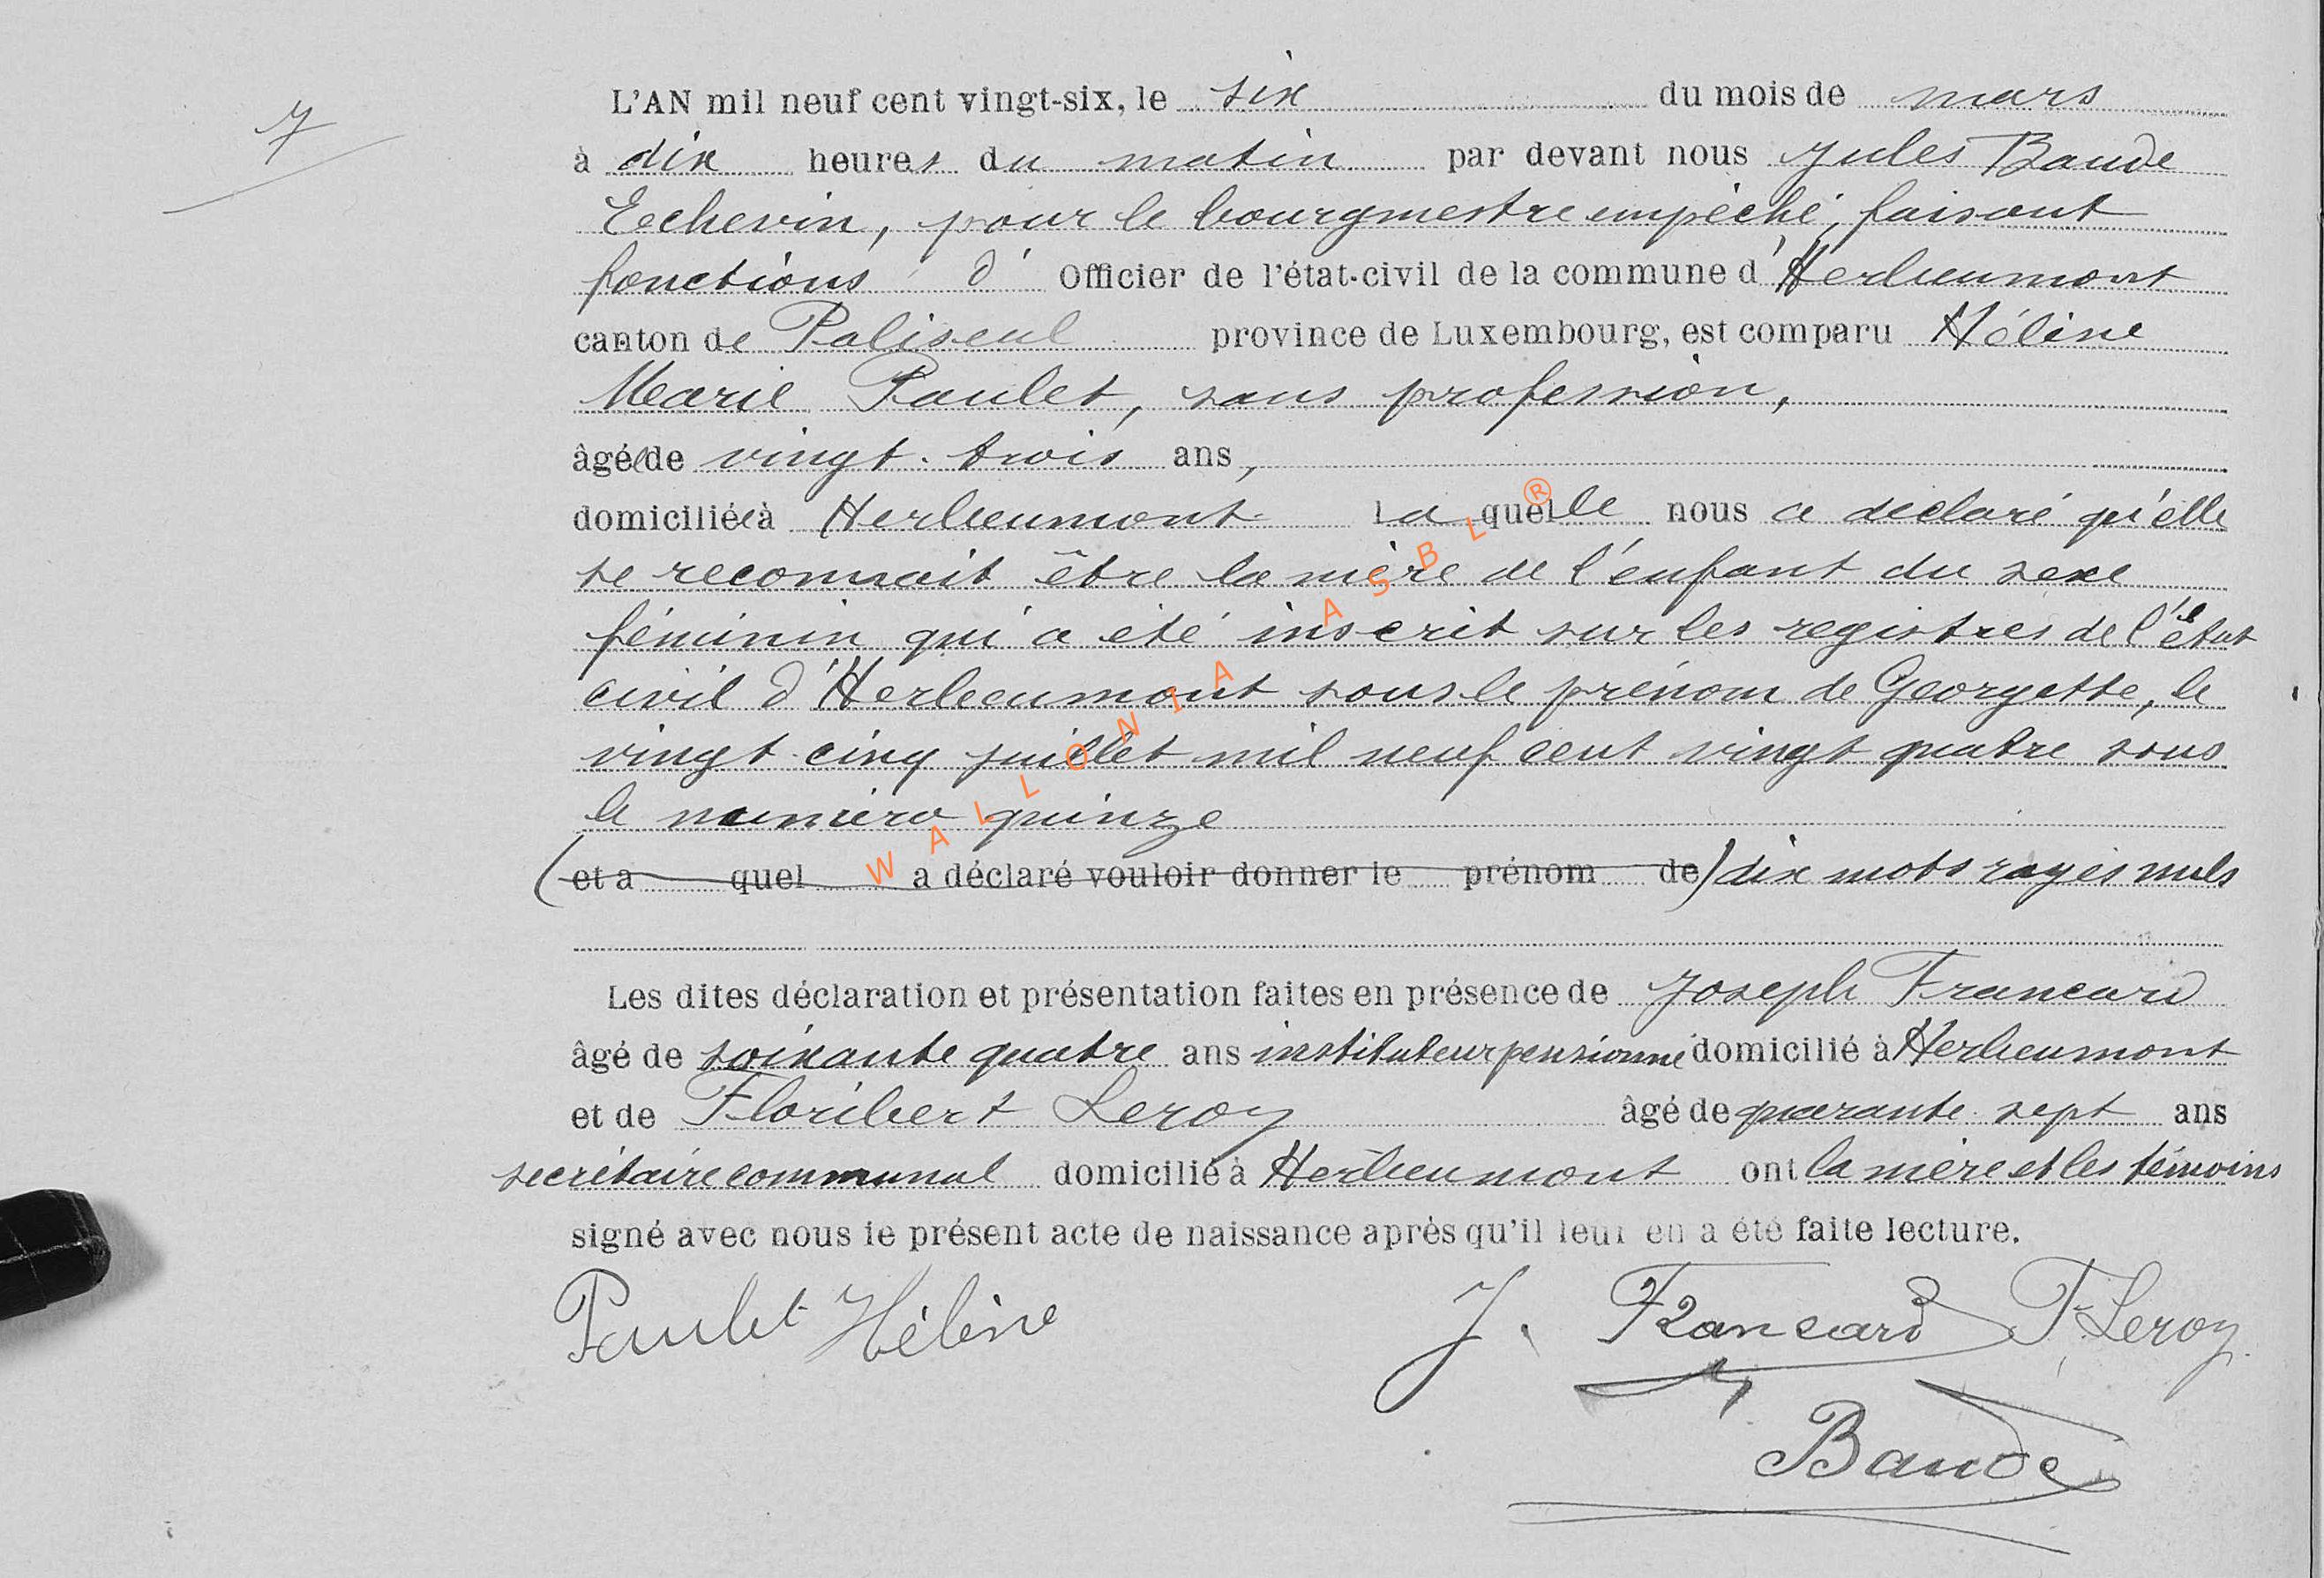 7
L'AN mil neuf cent vingt-six, le six du mois de mars
à dix heures du matin par devant nous Jules Baude
Echevin, pour le bourgmestre empêché, faisant
fonctions d' Officier de l'état-civil de la commune d'Herbeumont
canton de Paliseul province de Luxembourg, est comparu Hélène
Marie Paulet, sans profession,
âgée de vingt-trois ans,
domiciliée à Herbeumont laquelle nous a déclaré qu'elle
se reconnait être la mère de l'enfant du sexe
féminin qui a été inscrit sur les registres de l'état
civil d'Herbeumont sous le prénom de Georgette, le
vingt-cinq juillet mil neuf cent vingt quatre sous
le numéro quinze
(et a quel a déclaré vouloir donner le prénom de) dix mots rayés nuls
Les dites déclaration et présentation faites en présence de Joseph Francard
âgé de soixante quatre ans instituteur pensionné domicilié à Herbeumont
et de Floribert Leroy âgé de quarante-sept ans
secrétaire communal domicilié à Herbeumont ont la mère et les témoins
signé avec nous le présent acte de naissance après qu'il leur en a été faite lecture.
Paulet Hélène J. Francard F. Leroy
J. Baude
WALLONIA ASBL ®